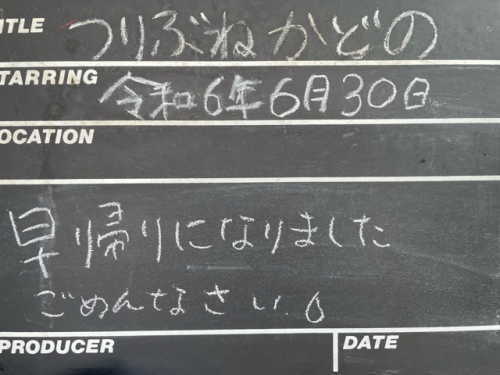 TITLE つりぶねかどの
TARRING 令和6年6月30日
OCATION
早帰りになりました
ごめんなさい。
PRODUCER DATE